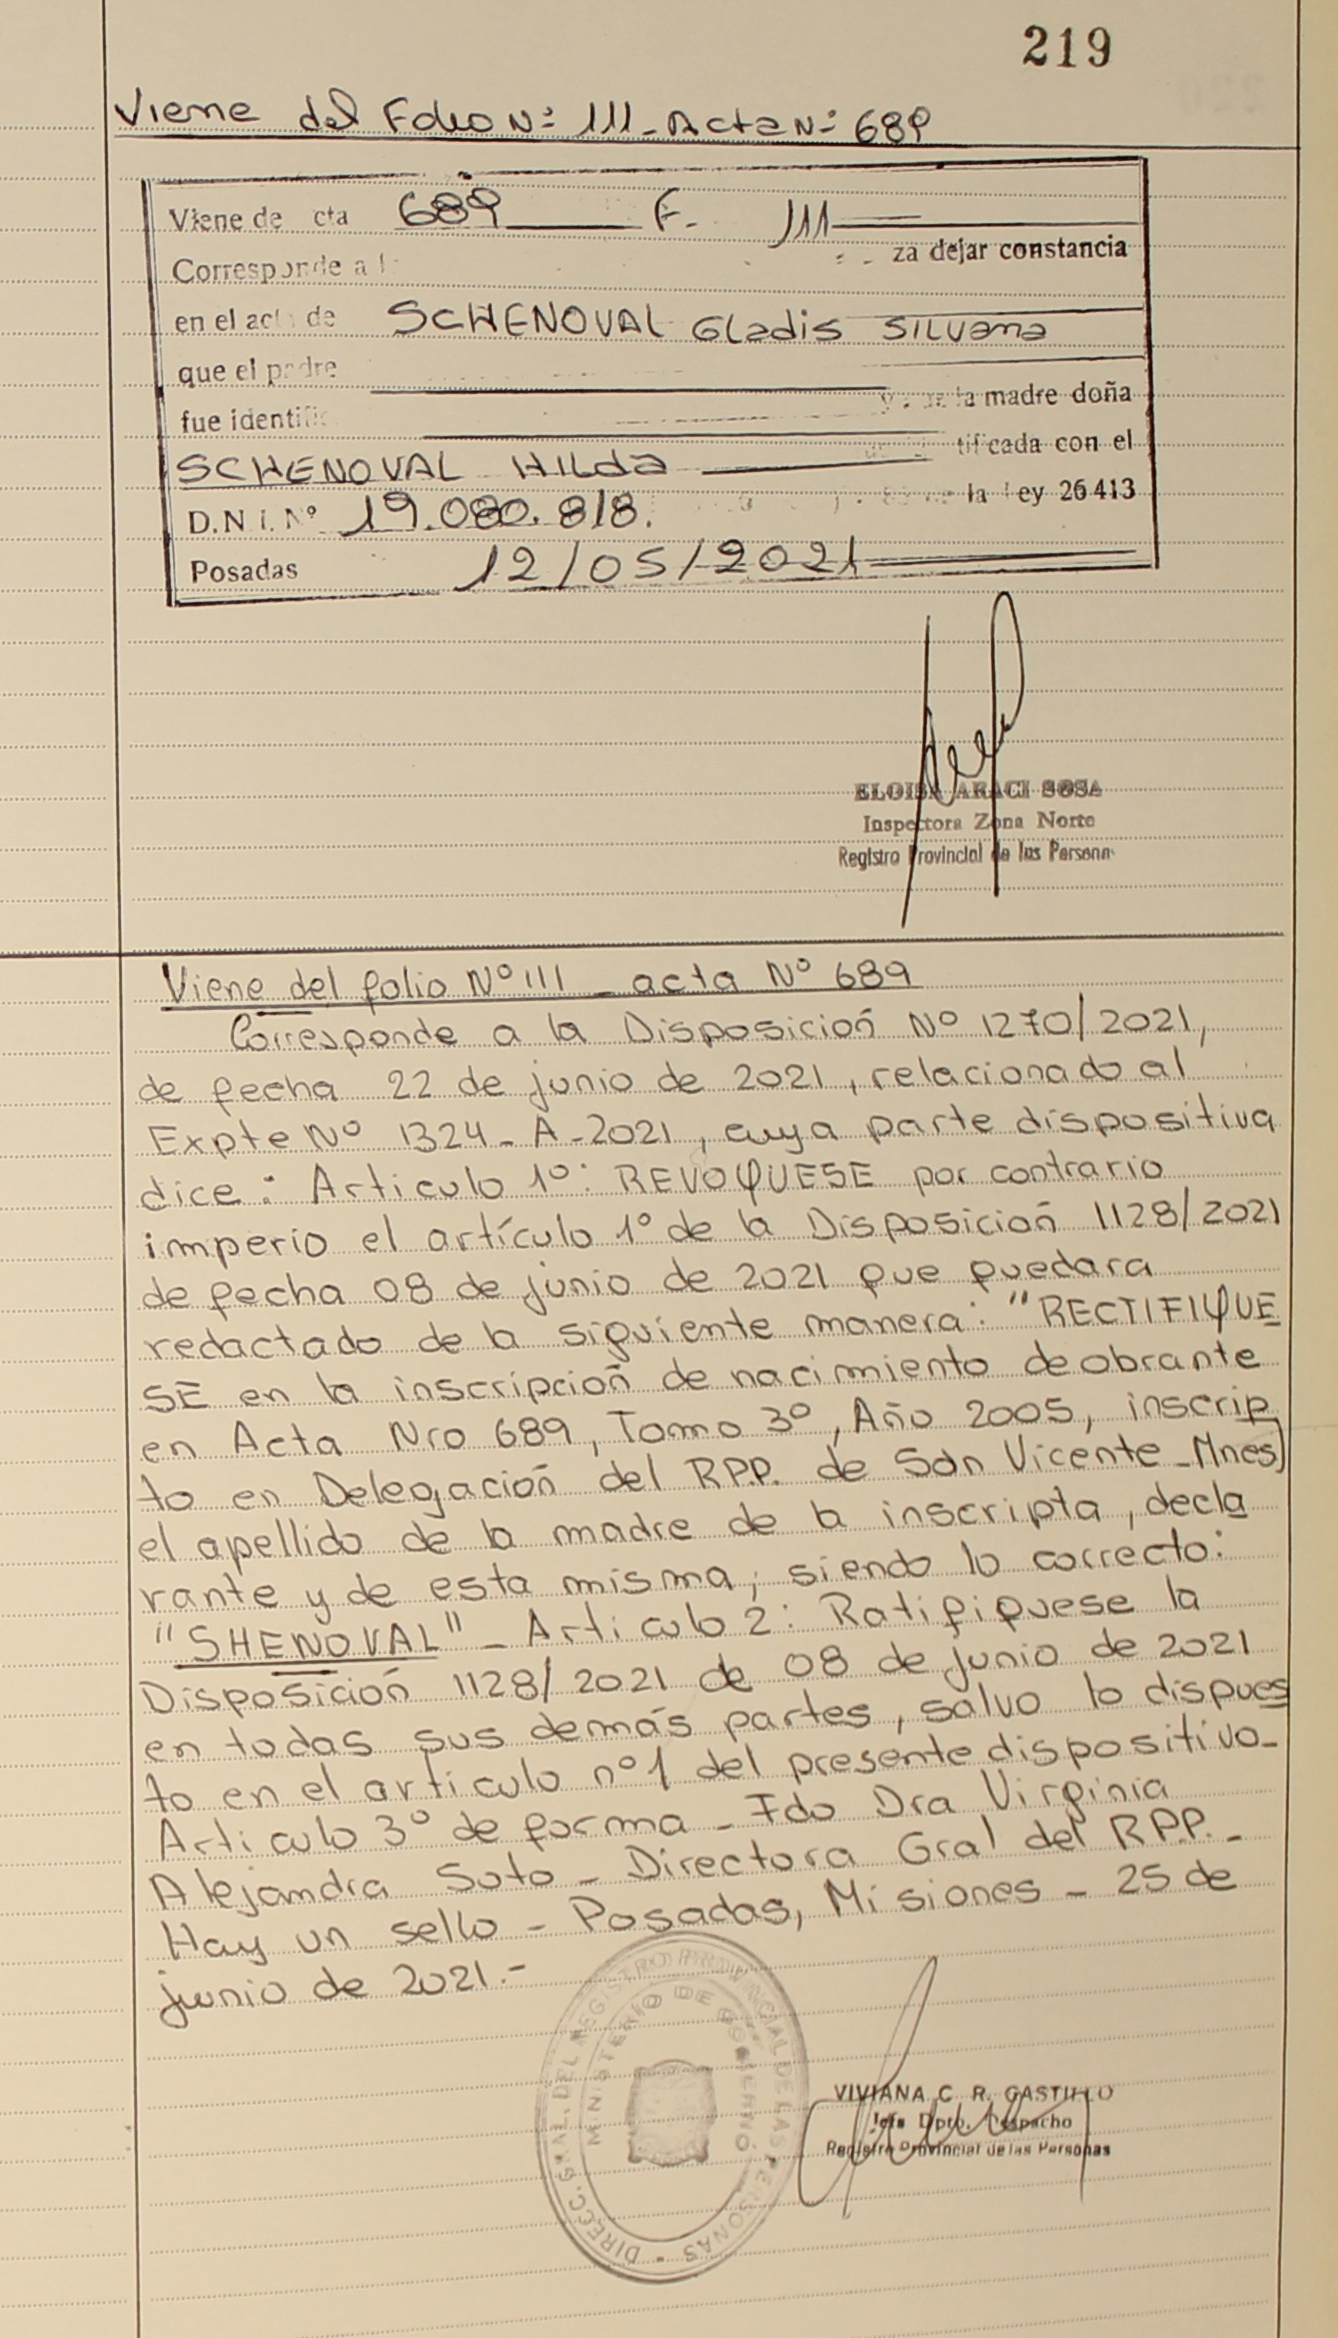 219
Viene del Folio Nº 111 - Acta Nº 689
Viene de cta 689 F. 111
Corresponde a l za dejar constancia
en el acta de SCHENOVAL Gladis SILVana
que el padre
fue identific la madre doña
SCHENOVAL HILda tificada con el
D.N.I. Nº 19.080.818. la ley 26413
Posadas 12/05/2021
ELOISA ARACI SOSA
Inspectora Zona Norte
Registro Provincial de las Personas
Viene del folio Nº 111 - acta Nº 689
Corresponde a la Disposición Nº 1270/2021,
de fecha 22 de junio de 2021, relacionado al
Expte Nº 1324-A-2021, cuya parte dispositiva
dice: Articulo 1º: REVOQUESE por contrario
imperio el artículo 1º de la Disposición 1128/2021
de fecha 08 de junio de 2021 que quedara
redactado de la siguiente manera: "RECTIFIQUE
SE en la inscripción de nacimiento de obrante
en Acta Nro 689, Tomo 3º, Año 2005, inscrip
to en Delegación del R.P.P. de San Vicente - Mnes)
el apellido de la madre de la inscripta, decla
rante y de esta misma, siendo lo correcto:
"SHENOVAL" - Articulo 2: Ratifiquese la
Disposición 1128/2021 de 08 de junio de 2021
en todas sus demás partes, salvo lo dispues
to en el articulo nº1 del presente dispositivo-
Articulo 3º de forma - Fdo Dra Virginia
Alejandra Soto - Directora Gral del R.P.P. -
Hay un sello - Posadas, Misiones - 25 de
junio de 2021.-
DIRECC. GRAL. DEL REGISTRO PROVINCIAL DE LAS PERSONAS
MINISTERIO DE GOBIERNO
VIVIANA C. R. CASTILLO
Jefa Dpto. Despacho
Registro Provincial de las Personas